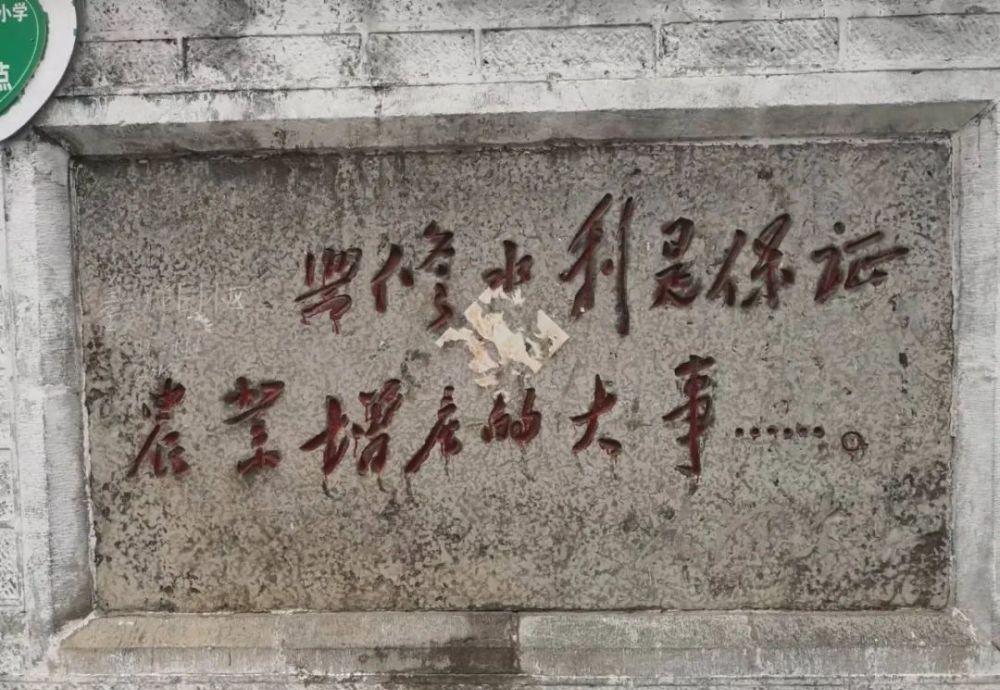 小学
点
興修水利是保证
农業增产的大事……。